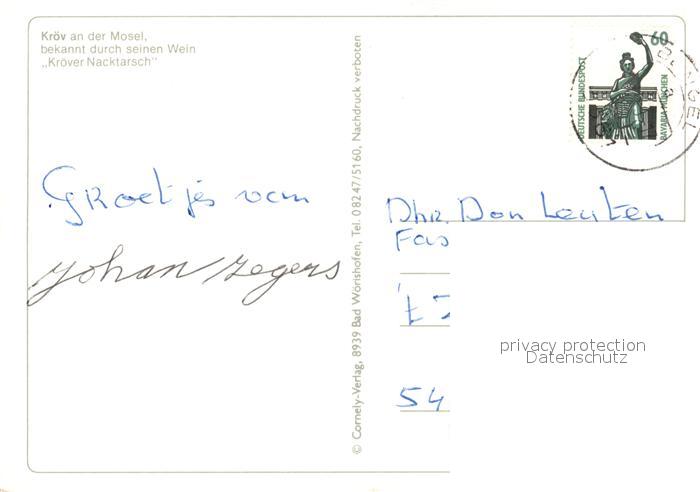 Kröv an der Mosel,
bekannt durch seinen Wein
„Kröver Nacktarsch"
Groetjes van
Johan Zegers
© Cornely-Verlag, 8939 Bad Wörishofen, Tel. 0 82 47/51 60, Nachdruck verboten
60
DEUTSCHE BUNDESPOST
BAVARIA MÜNCHEN
Dhr. Don Leuten
Fas
't
54
privacy protection
Datenschutz